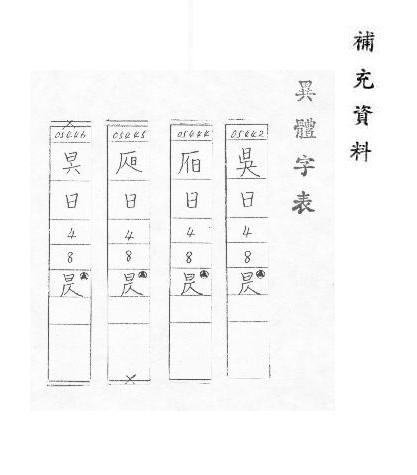 補充資料
異體字表
05442
日
4
8
昃
05444
日
4
8
昃
05445
日
4
8
昃
05446
日
4
8
昃